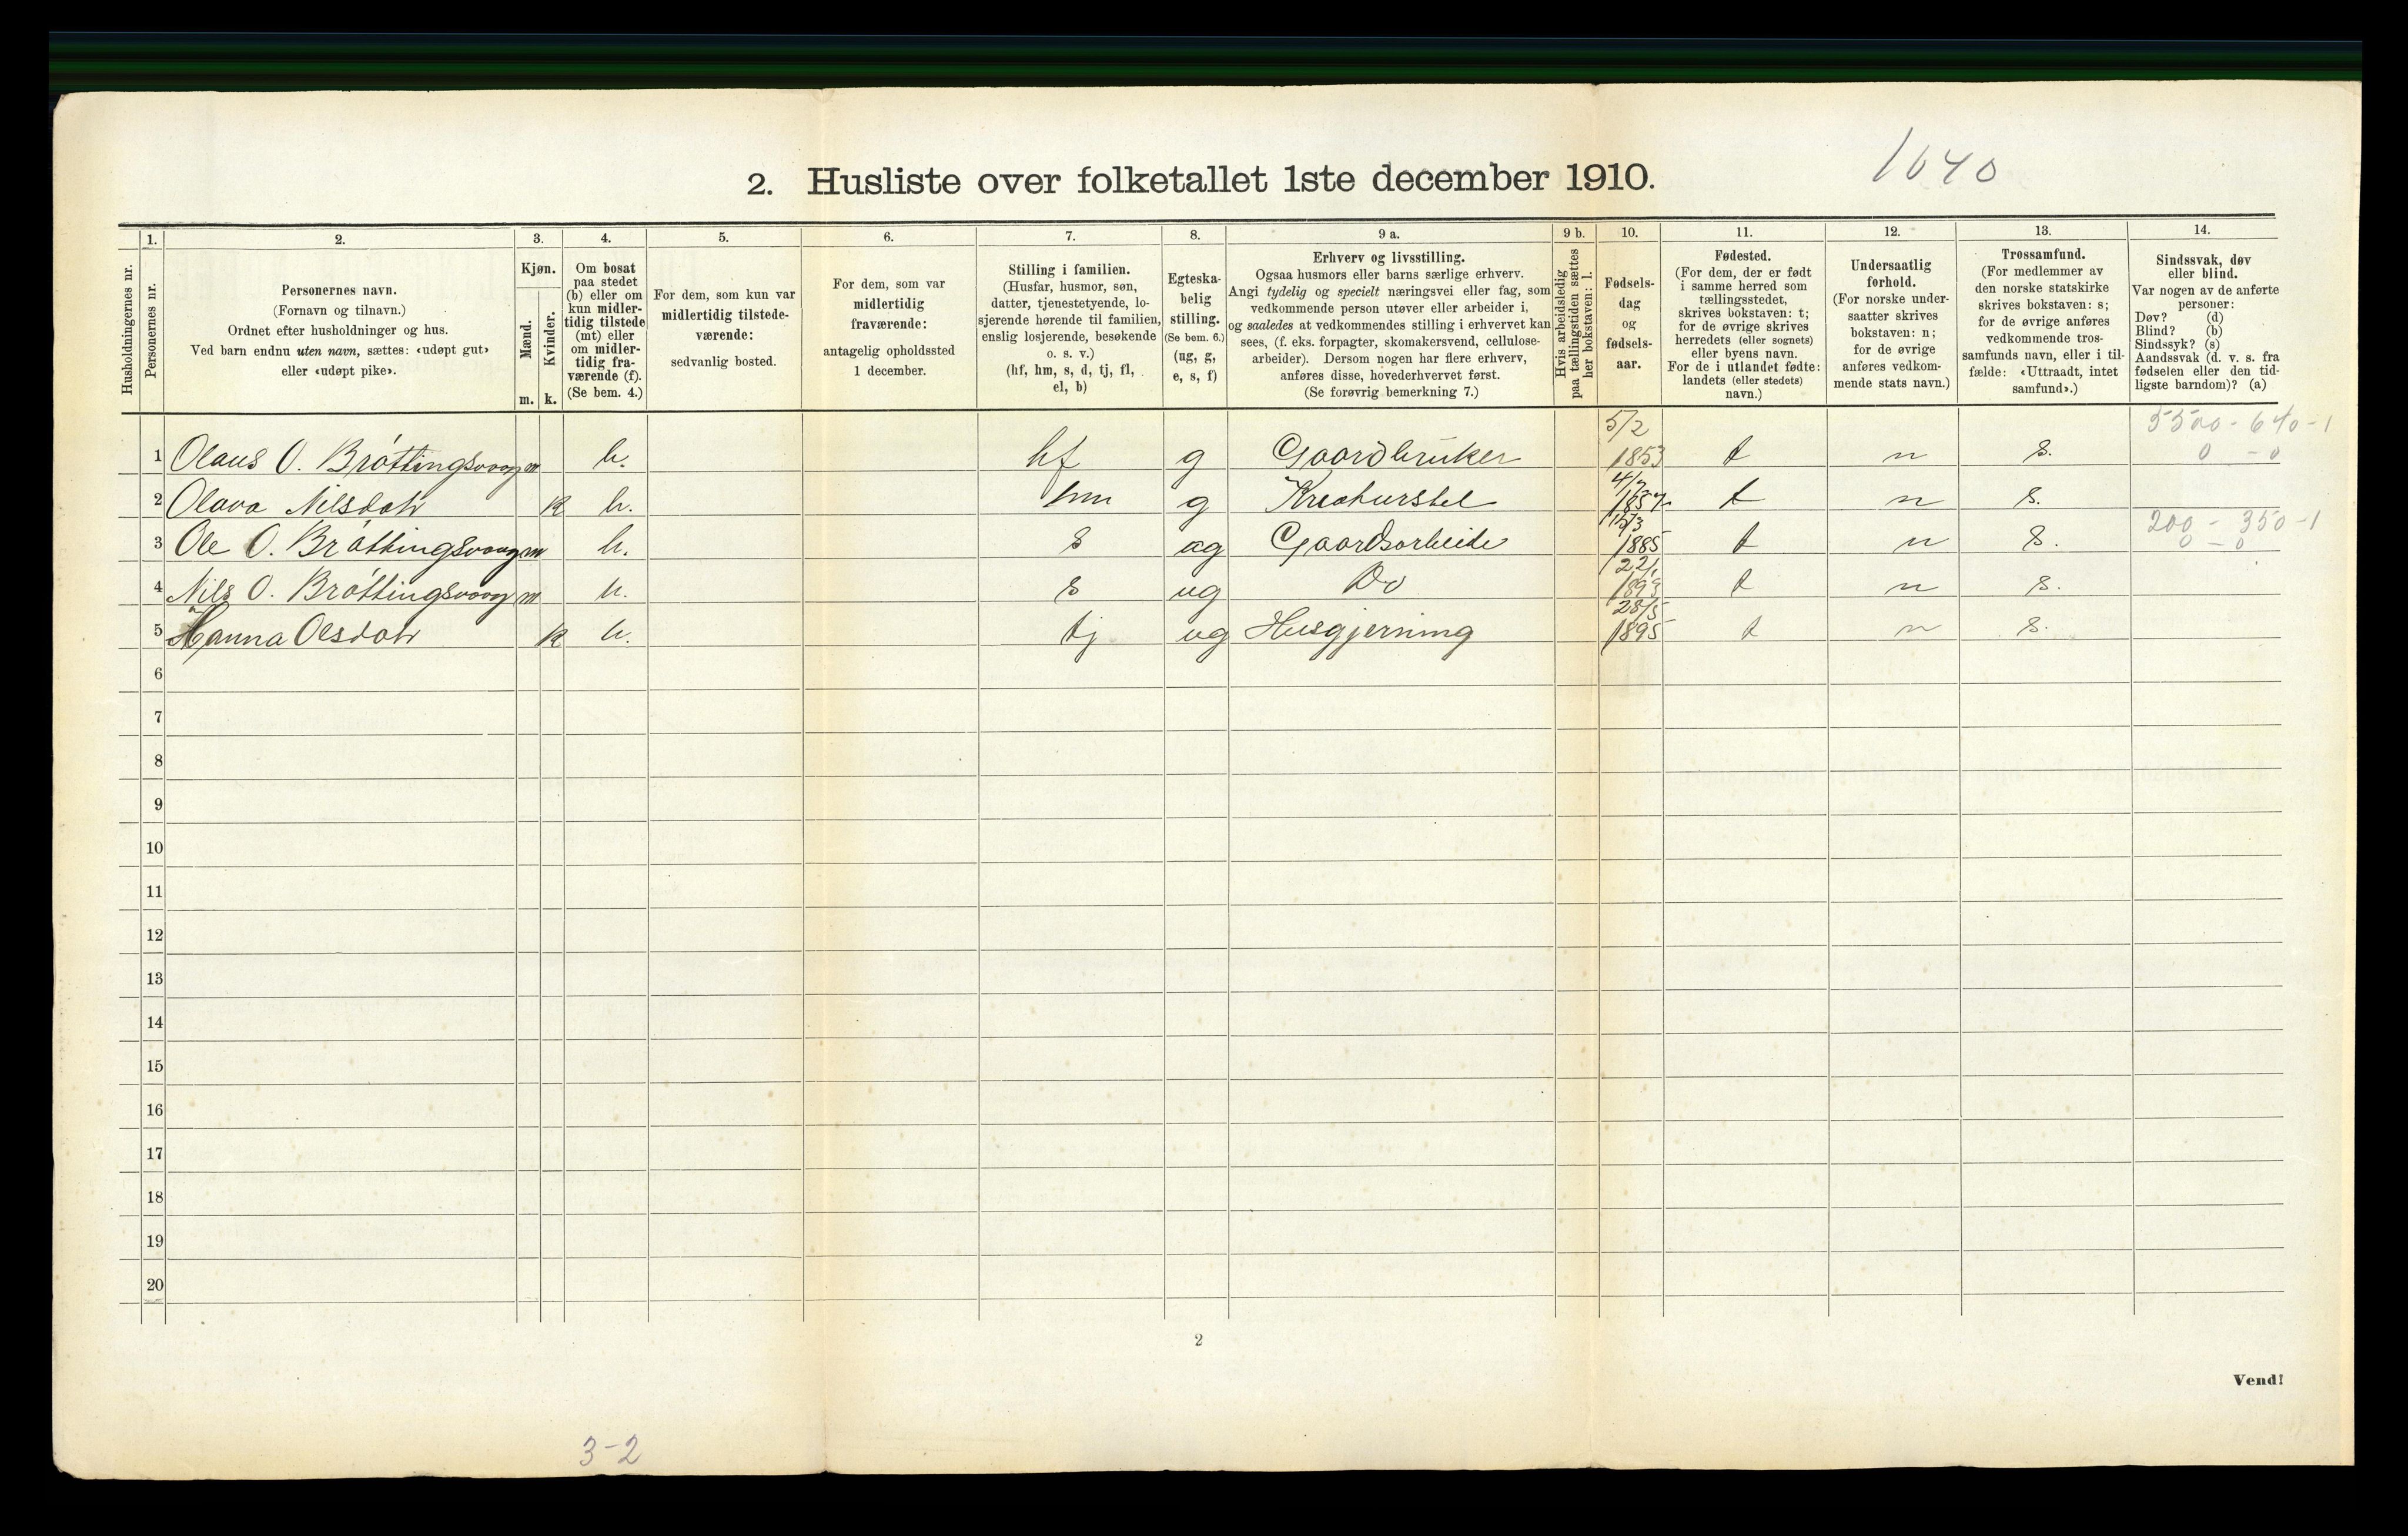 1640
2. Husliste over folketallet 1ste december 1910.
1. 2. 3. 4. 5. 6. 7. 8. 9 a. 9 b. 10. 11. 12. 13. 14.
Husholdningernes nr.
Personernes nr.
Personernes navn.
(Fornavn og tilnavn.)
Ordnet efter husholdninger og hus.
Ved barn endnu uten navn, sættes: «udøpt gut»
eller «udøpt pike».
Kjøn.
Mænd.
Kvinder.
m. k.
Om bosat
paa stedet
(b) eller om
kun midler-
tidig tilstede
(mt) eller
om midler-
tidig fra-
værende (f).
(Se bem. 4.)
For dem, som kun var
midlertidig tilstede-
værende:
sedvanlig bosted.
For dem, som var
midlertidig
fraværende:
antagelig opholdssted
1 december.
Stilling i familien.
(Husfar, husmor, søn,
datter, tjenestetyende, lo-
sjerende hørende til familien,
enslig losjerende, besøkende
o. s. v.)
(hf, hm, s, d, tj, fl,
el, b)
Egteska-
belig
stilling.
(Se bem. 6.)
(ug, g,
e, s, f)
Erhverv og livsstilling.
Ogsaa husmors eller barns særlige erhverv.
Angi tydelig og specielt næringsvei eller fag, som
vedkommende person utøver eller arbeider i,
og saaledes at vedkommendes stilling i erhvervet kan
sees, (f. eks. forpagter, skomakersvend, cellulose-
arbeider). Dersom nogen har flere erhverv,
anføres disse, hovederhvervet først.
(Se forøvrig bemerkning 7.)
Hvis arbeidsledig
paa tællingstiden sættes
her bokstaven: l.
Fødsels-
dag
og
fødsels-
aar.
Fødested.
(For dem, der er født
i samme herred som
tællingsstedet,
skrives bokstaven: t;
for de øvrige skrives
herredets (eller sognets)
eller byens navn.
For de i utlandet fødte:
landets (eller stedets)
navn.)
Undersaatlig
forhold.
(For norske under-
saatter skrives
bokstaven: n;
for de øvrige
anføres vedkom-
mende stats navn.)
Trossamfund.
(For medlemmer av
den norske statskirke
skrives bokstaven: s;
for de øvrige anføres
vedkommende tros-
samfunds navn, eller i til-
fælde: «Uttraadt, intet
samfund».)
Sindssvak, døv
eller blind.
Var nogen av de anførte
personer:
Døv? (d)
Blind? (b)
Sindssyk? (s)
Aandssvak (d. v. s. fra
fødselen eller den tid-
ligste barndom)? (a)
5/2 5500 - 640 - 1
1 Olaus O. Bråttingsvaag m b. hf g Gaardbruker 1853 t n s. 0 - 0
4/7
2 Olava Nilsdatr k b. hm g Kreaturstel 1857 t n s.
15/3 200 - 350 - 1
3 Ole O. Bråttingsvaag m b. s ug Gaardsarbeide 1885 t n s. 0 - 0
22/1
4 Nils O. Bråttingsvaag m b. s ug Do 1893 t n s.
28/5
5 Hanna Olsdatr k b. tj ug Husgjerning 1895 t n s.
6
7
8
9
10
11
12
13
14
15
16
17
18
19
20
2
Vend!
3-2